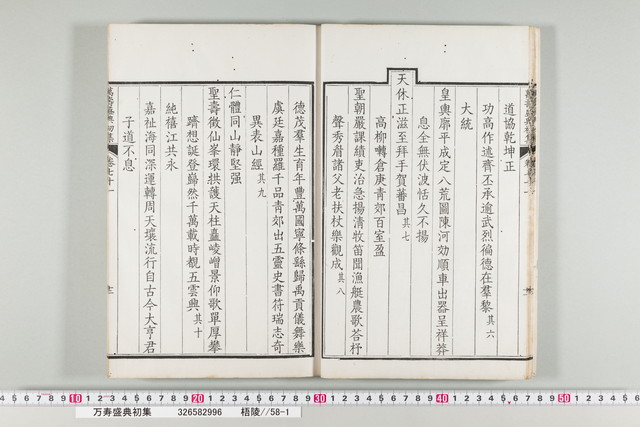 道協乾坤正
功高作述齊丕承逾武烈徧德在羣黎其六
大統
皇輿廓平成定八荒圖陳河効順車出器呈祥莽
息全無伏波恬久不揚
天休正滋至拜手賀蕃昌其七
高柳囀倉庚青郊百室盈
聖朝嚴課績吏治急揚清牧笛聞漁艇農歌答杼
聲秀眉諸父老扶杖樂觀成其八
德茂羣生育年豐萬國寧條縣歸禹貢儀舞樂
虞廷嘉種羅千品青郊出五靈史書符瑞志奇
異表山經其九
仁體同山靜堅强
聖壽徵仙峯環拱護天柱矗崚嶒景仰歌單厚攀
躋想誕登巋然千萬載時覩五雲興其十
純禧江共永
嘉祉海同深運轉周天壤流行自古今大亨君
子道不息
10 20 30 40 50
万寿盛典初集 326582996 梧陵//58-1